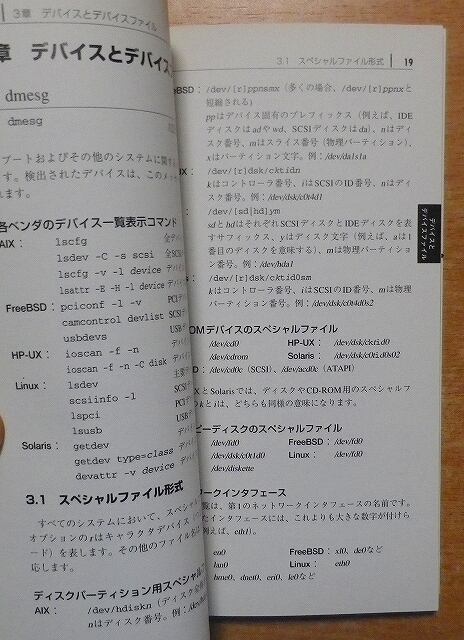 3章 デバイスとデバイスファイル
章 デバイスとデバイス
dmesg
dmesg
ブートおよびその他のシステムに関す
す。検出されたデバイスは、このメッ
れます。
各ベンダのデバイス一覧表示コマンド
AIX: lscfg
lsdev -C -s scsi
lscfg -v -l device
lsattr -E -H -l device
FreeBSD: pciconf -l -v
camcontrol devlist
usbdevs
HP-UX: ioscan -f -n
ioscan -f -n -C disk
Linux: lsdev
scsiinfo -l
lspci
lsusb
Solaris: getdev
getdev type=class
devattr -v device
3.1 スペシャルファイル形式
すべてのシステムにおいて、スペシャ
オプションのrはキャラクタデバイス
ード)を表します。その他のファイル名は
応します。
ディスクパーティション用スペシャル
AIX: /dev/hdiskn (ディスク全
nはディスク番号。例:/dev/
3.1 スペシャルファイル形式 19
BSD: /dev/[r]ppnsmx (多くの場合、/dev/[r]ppnxと
短縮される)
ppはデバイス固有のプレフィックス (例えば、IDE
ディスクはadやwd、SCSIディスクはda)、nはディ
スク番号、mはスライス番号 (物理パーティション)、
xはパーティション文字。例:/dev/da1s1a
: /dev/[r]dsk/cktidn
kはコントローラ番号、iはSCSIのID番号、nはディ
スク番号。例:/dev/dsk/c0t4d1
: /dev/[sd|hd]ym
sdとhdはそれぞれSCSIディスクとIDEディスクを表
すサフィックス、yはディスク文字 (例えば、aは1
番目のディスクを意味する)、mは物理パーティショ
ン番号。例:/dev/hda1
: /dev/[r]dsk/cktid0sm
kはコントローラ番号、iはSCSIのID番号、mは物理
パーティション番号。例:/dev/dsk/c0t4d0s2
デバイスと
デバイスファイル
OMデバイスのスペシャルファイル
/dev/cd0 HP-UX: /dev/dsk/ckti.d0
/dev/cdrom Solaris: /dev/dsk/c0ti.d0s02
/dev/cd0c (SCSI)、/dev/acd0c (ATAPI)
XとSolarisでは、ディスクやCD-ROM用のスペシャルフ
つkとiは、どちらも同様の意味になります。
ピーディスクのスペシャルファイル
/dev/fd0 FreeBSD: /dev/fd0
/dev/dsk/c0t1d0 Linux: /dev/fd0
/dev/diskette
ワークインタフェース
覧は、第1のネットワークインタフェースの名前です。
たインタフェースには、これよりも大きな数字が付けら
例えば、eth1)。
en0 FreeBSD: xl0、de0など
lan0 Linux: eth0
hme0、dnet0、eri0、le0など